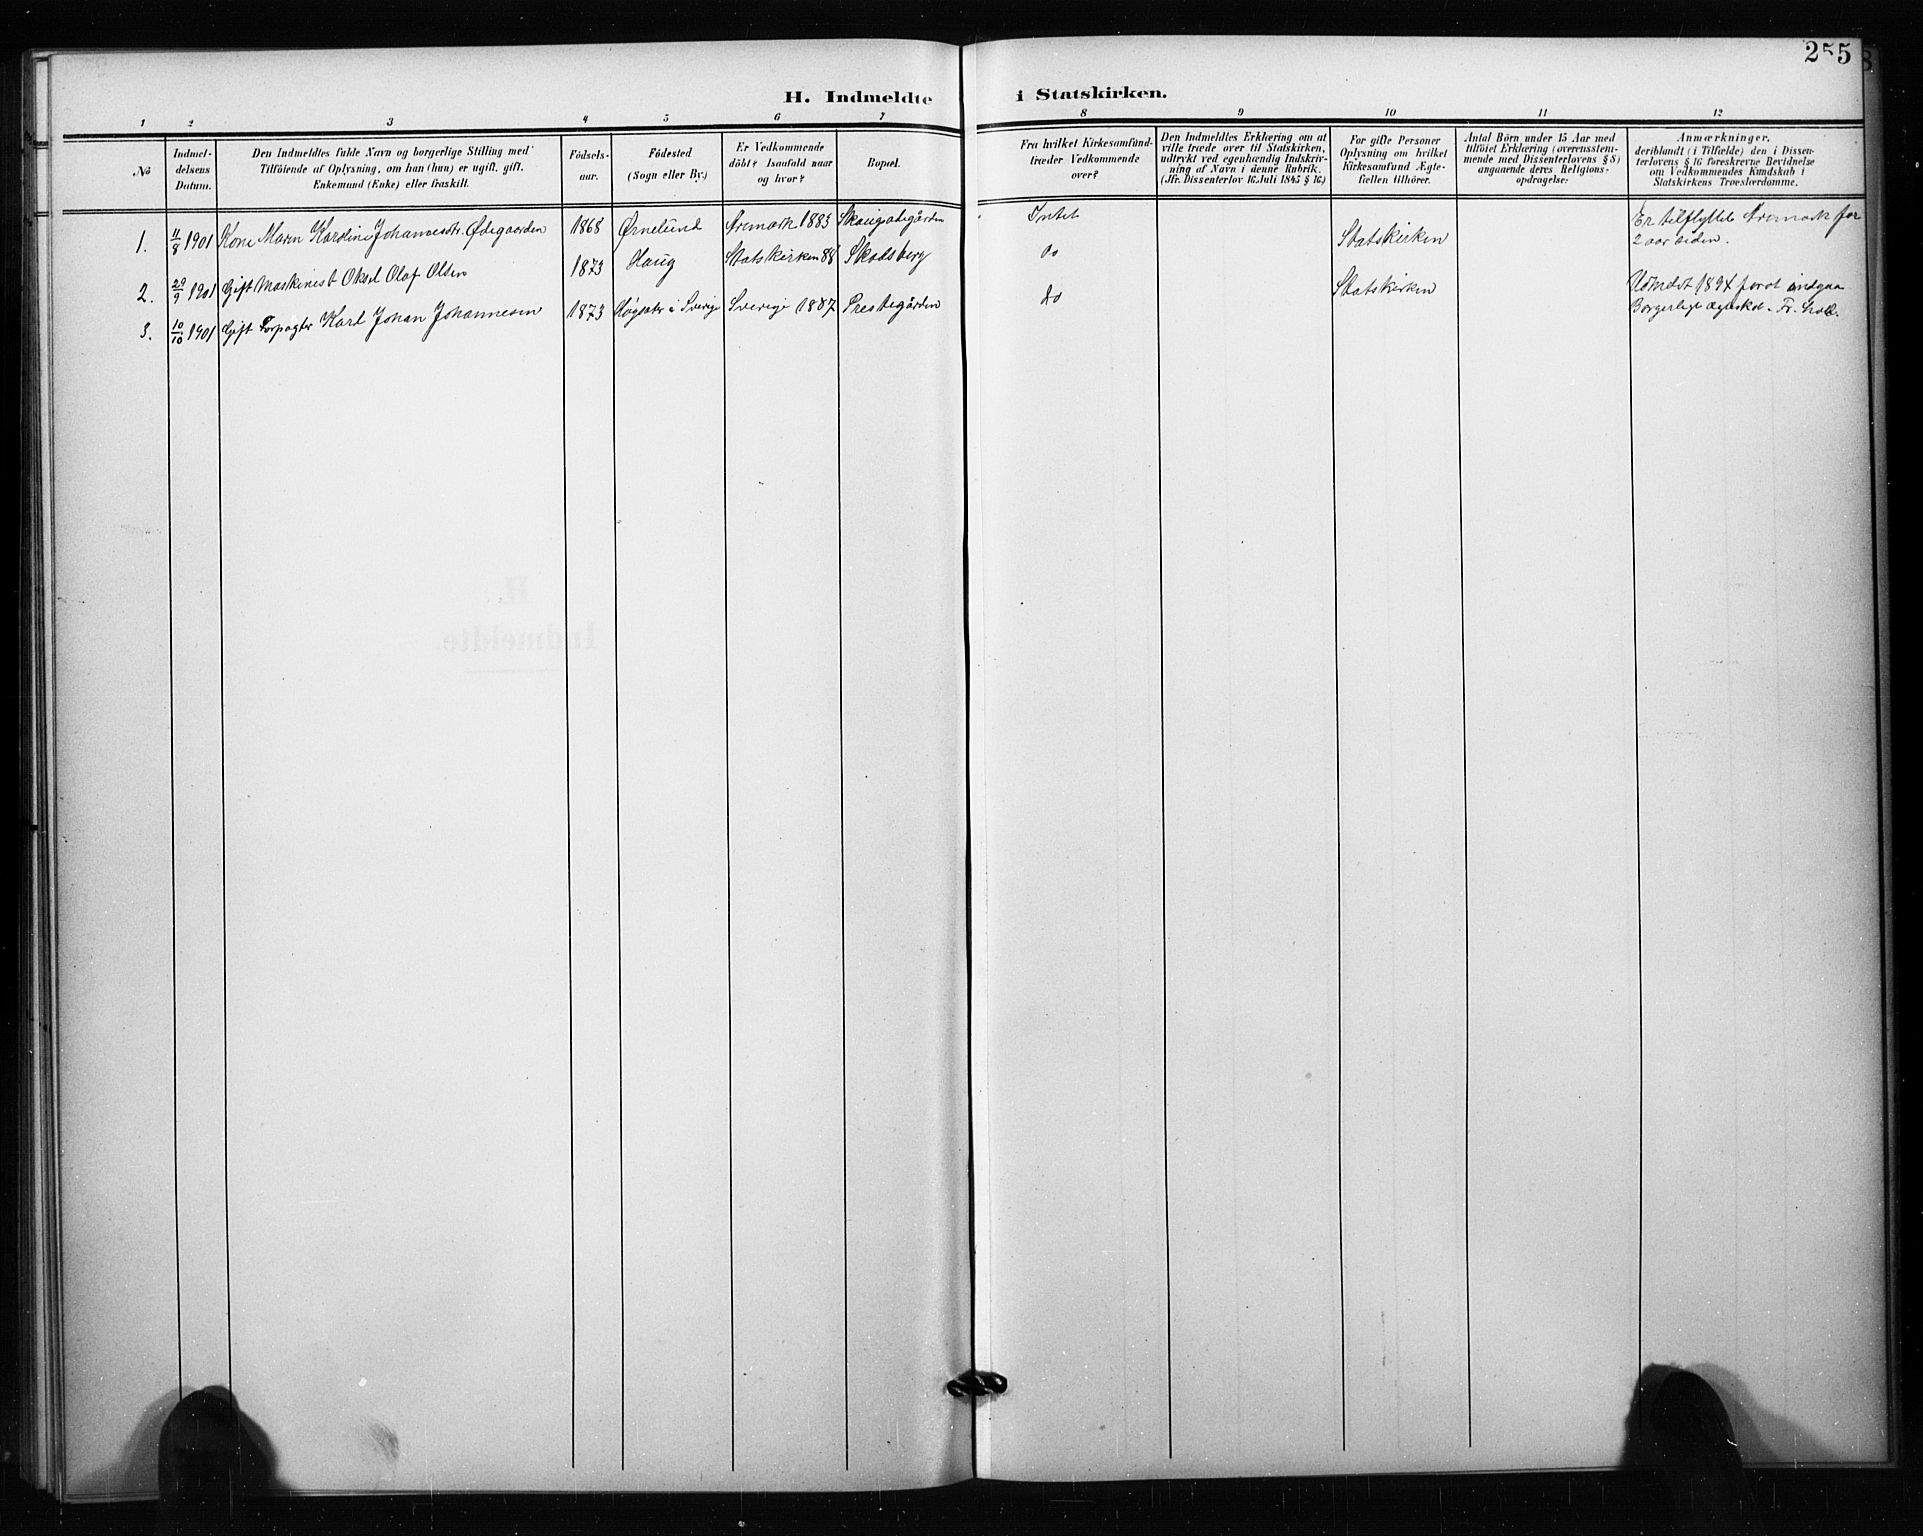 255
H. Indmeldte i Statskirken.
1 2 3 4 5 6 7 8 9 10 11 12
No
Indmel-
delsens
Datum.
Den Indmeldtes fulde Navn og borgerlige Stilling med
Tilföiende af Oplysning, om han (hun) er ugift, gift,
Enkemand (Enke) eller fraskilt.
Födsels-
aar.
Födested
(Sogn eller By.)
Er Vedkommende
döbt? Isaafald naar
og hvor?
Bopæl.
Fra hvilket Kirkesamfund
træder Vedkommende
over?
Den Indmeldtes Erklæring om at
ville træde over til Statskirken,
udtrykt ved egenhændig Indskriv-
ning af Navn i denne Rubrik.
(Jfr. Dissenterlov 16. Juli 1845 § 16.)
For gifte Personer
Oplysning om hvilket
Kirkesamfund Ægte-
fællen tilhörer.
Antal Börn under 15 Aar med
tilföiet Erklæring (overensstem-
mende med Dissenterlovens § 8)
angaaende deres Religions-
opdragelse:
Anmærkninger,
deriblandt (i Tilfælde) den i Dissen-
terlovens § 16 foreskrevne Bevidnelse
om Vedkommendes Kundskab i
Statskirkens Troeslærdomme.
1. 11/8 1901 Kone Maren Karoline Johannesdtr. Ødegaarden 1868 Ørnelund Aremark 1883 Skaugsødegården Intet Statskirken Er tilflyttet Aremark for
2 aar siden.
2. 29/9 1901 Gift Maskinist Oksel Olaf Olsen 1873 Haug Statskirken 88 Skodsberg do Statskirken Udmeldt 1894 forat indgaa
Borgerligt ægteskab. Fr. hald.
3. 10/10 1901 Gift Forpagter Karl Johan Johannesen 1873 Høgsæter i Sverige Sverige 1887 Prestegården do
H.
Indmeldte.